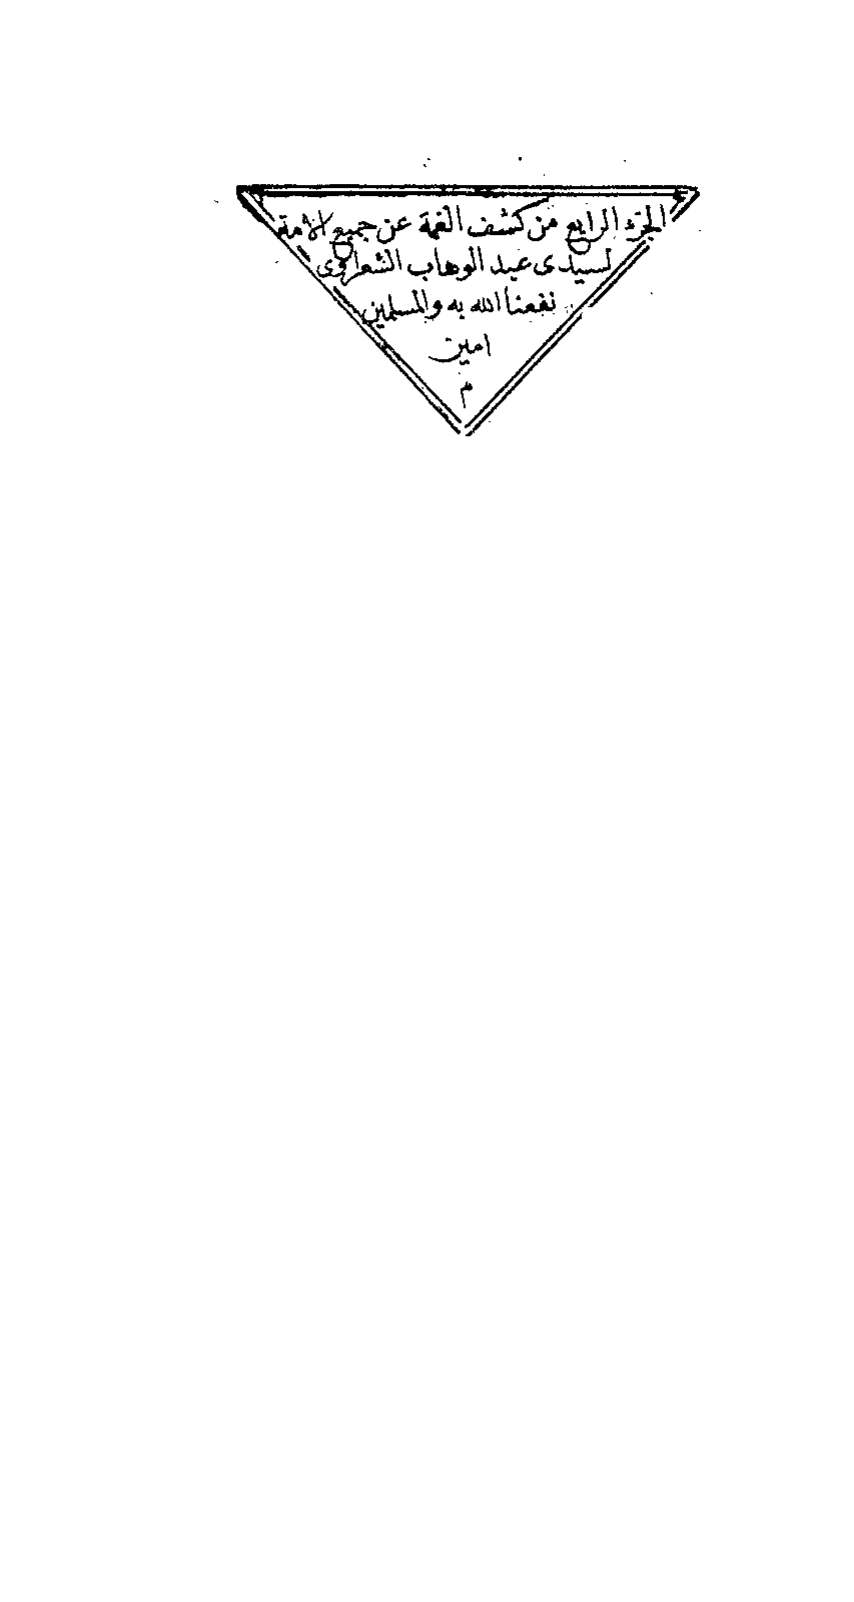 الجزء الرابع من كشف الغمة عن جميع الامة
لسيدى عبد الوهاب الشعراوى
نفعنا الله به والمسلمين
امين
م